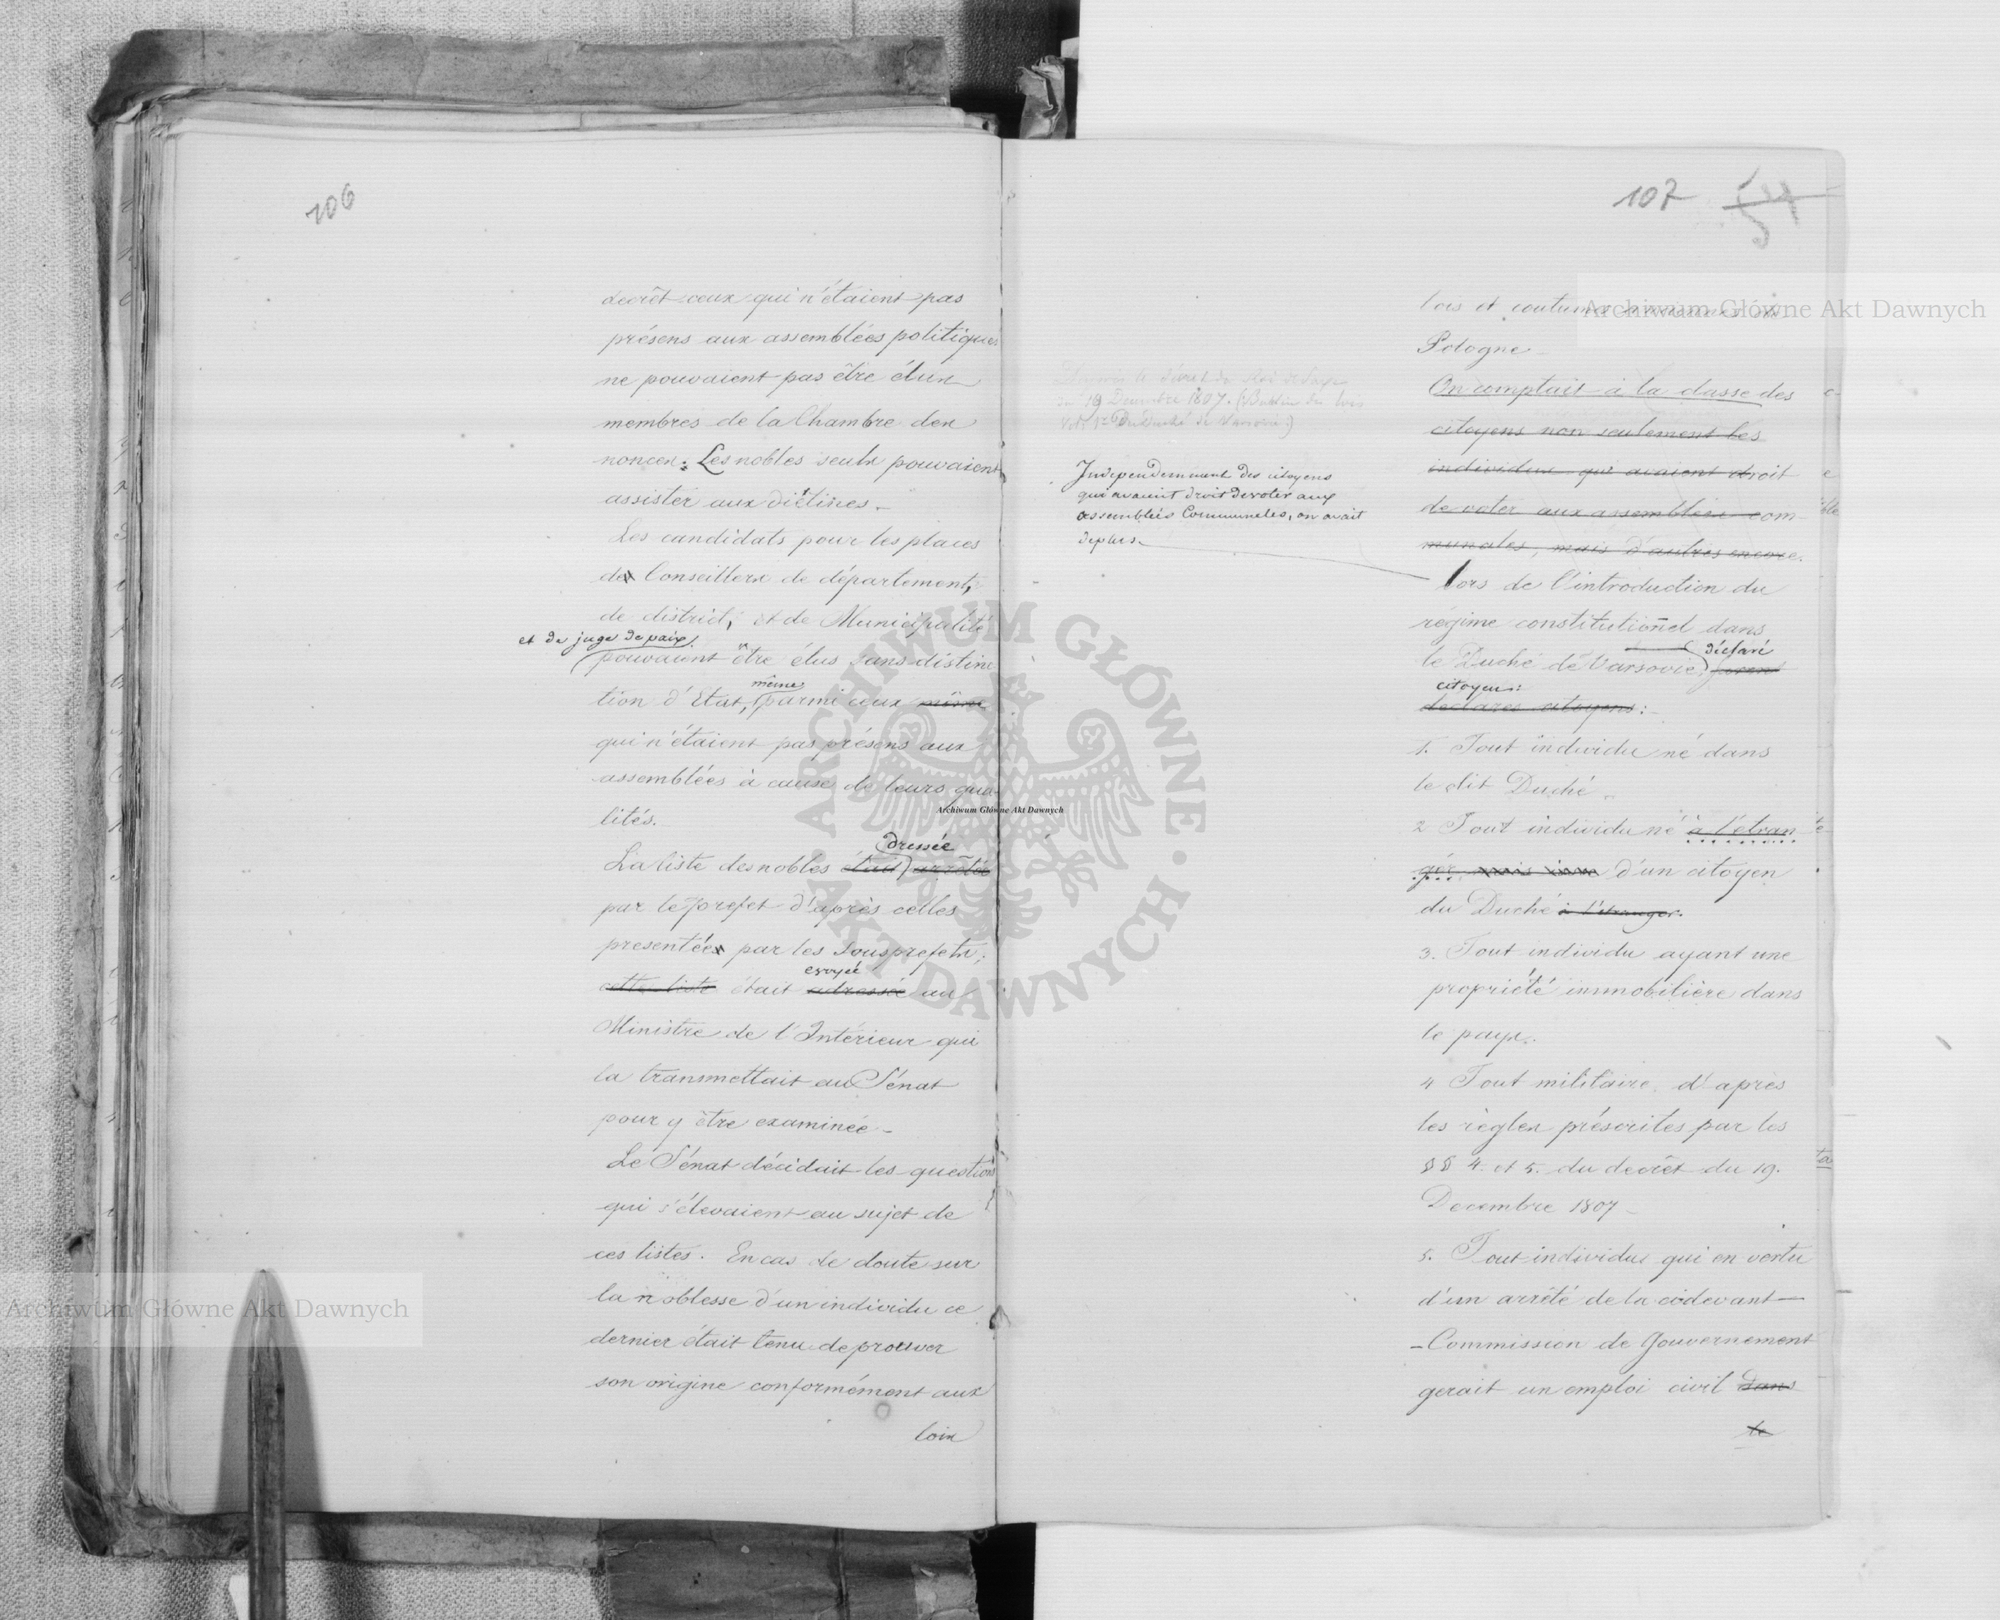 106
decrêt ceux qui n'étaient pas
présens aux assemblées politiques
ne pouvaient pas être élus
membres de la Chambre des
nonces: Les nobles seuls pouvaient
assister aux diétines.
Les candidats pour les places
de Conseillers de département,
de district, et de Municipalité
et de juge de paix
pouvaient être élus sans distinc
tion d'Etat, même parmi ceux même
qui n'étaient pas présens aux
assemblées à cause de leurs qua
lités.
dressée
La liste des nobles était arrêtée
par le préfet d'après celles
presentées par les Sousprefets;
envoyée
cette liste était adressée au
Ministre de l'Intérieur qui
la transmettait au Sénat
pour y être examinée
Le Sénat décidait les questions
qui s'élevaient au sujet de
ces listes. En cas de doute sur
la noblesse d'un individu ce
dernier était tenu de prouver
son origine conformément aux
loix
107
lois et coutumes
Pologne
On comptait à la classe des
citoyens non seulement les
individus qui avaient droit
de voter aux assemblées com-
munales, mais d'autres encore.
19 Decembre 1807. (Bulletin des lois
Du Duché de Varsovie)
Independemment des citoyens
qui avaient droit de voter aux
assemblées Communales, on avait
depuis
lors de l'introduction du
régime constitutionel dans
déclaré
le Duché de Varsovie furent
citoyens:
declarés citoyens:
1. Tout individu né dans
le dit Duché
2 Tout individu né à l'étran
ger mais d'un citoyen
du Duché à l'étranger.
3. Tout individu ayant une
propriété immobilière dans
le pays.
4 Tout militaire, d'après
les règles préscrites par les
§§ 4. et 5. du decrêt du 19.
Decembre 1807
5. Tout individus qui en vertu
d'un arrêté de la cidevant
- Commission de Gouvernement
gerait un emploi civil dans
le
Archiwum Główne Akt Dawnych
Archiwum Główne Akt Dawnych
Archiwum Główne Akt Dawnych
ARCHIWUM GŁÓWNE · AKT DAWNYCH ·